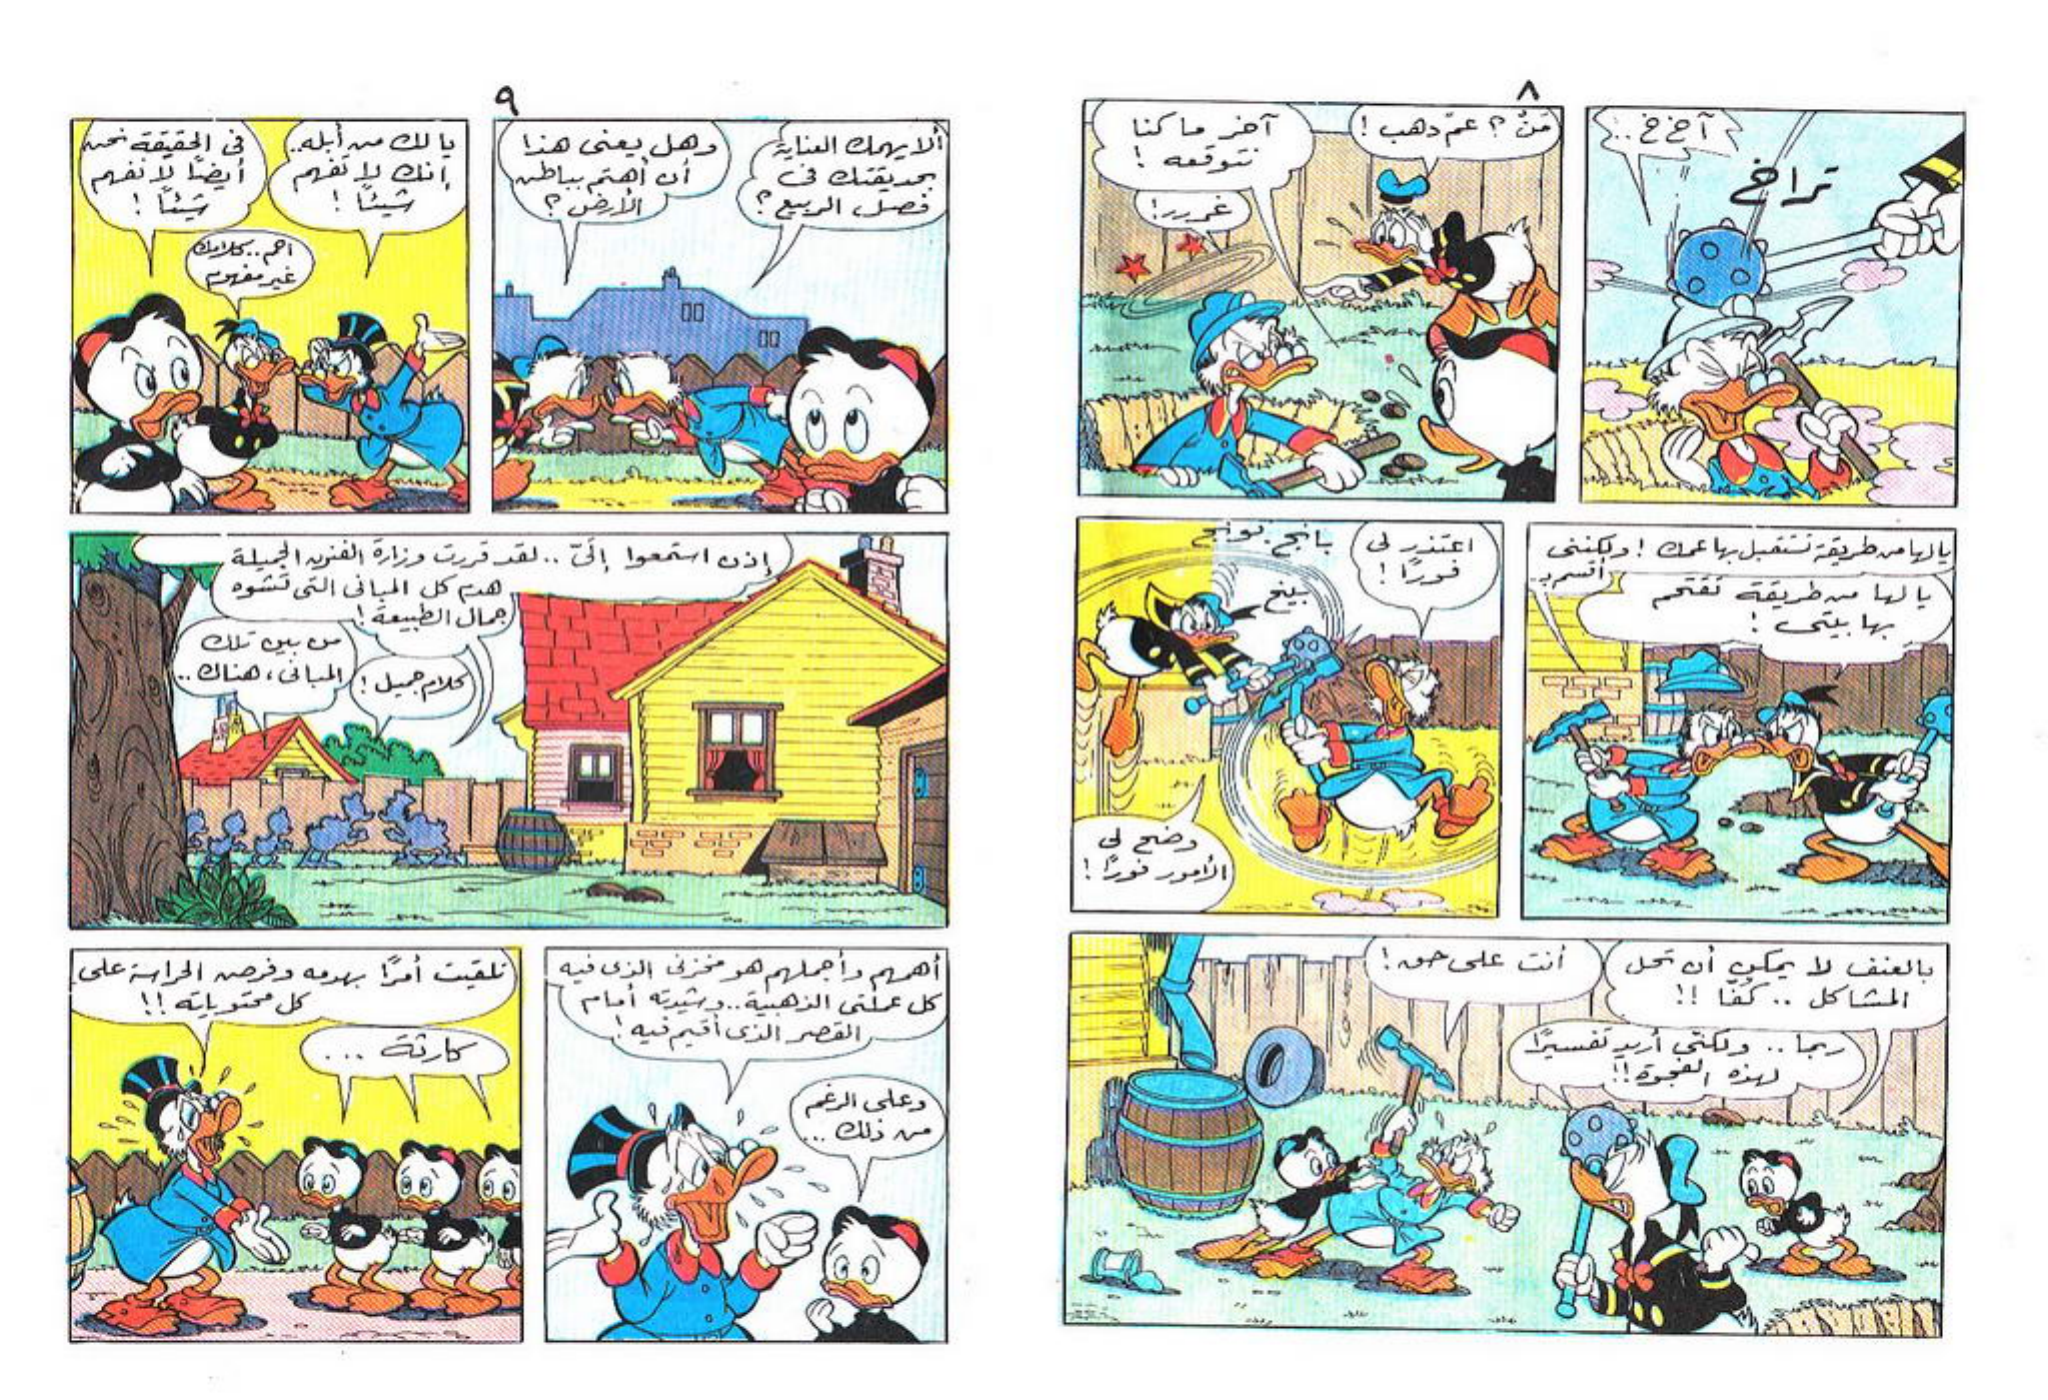 ٨
آخ خ ..
تراخ
مَنْ ؟ عمّ دهب !
آخر ما كنا
نتوقعه !
غررر !
يا لها من طريقة تستقبل بها عمك ! ولكننى
أقسم بـ..
يا لها من طريقة تقتحم
بها بيتى !
اعتذر لى
فورًا !
بانج بونج
بينج
وضح لى
الأمور فورًا !
بالعنف لا يمكن أن تحل
المشاكل .. كفّا !!
أنت على حق !
ربما .. ولكنّى أريد تفسيرًا
لهذه الفجوة !!
٩
ألا يهمك العناية
بحديقتك فى
فصل الربيع ؟
وهل يعنى هذا
أن أهتم بباطن
الأرض ؟
يا لك من أبله..
إنك لا تفهم
شيئًا !
احم .. كلامك
غير مفهوم
فى الحقيقة نحن
أيضًا لا نفهم
شيئًا !
إذن استمعوا إلىّ .. لقد قررت وزارة الفنون الجميلة
هدم كل المبانى التى تشوه
جمال الطبيعة !
كلام جميل !
من بين تلك
المبانى ، هناك ..
أهمهم وأجملهم هو مخزنى الذى فيه
كل عملتى الذهبية .. وشيدته أمام
القصر الذى أقيم فيه !
وعلى الرغم
من ذلك ...
تلقيت أمرًا بهدمه وفرض الحراسة على
كل محتوياته !!
كارثة ...